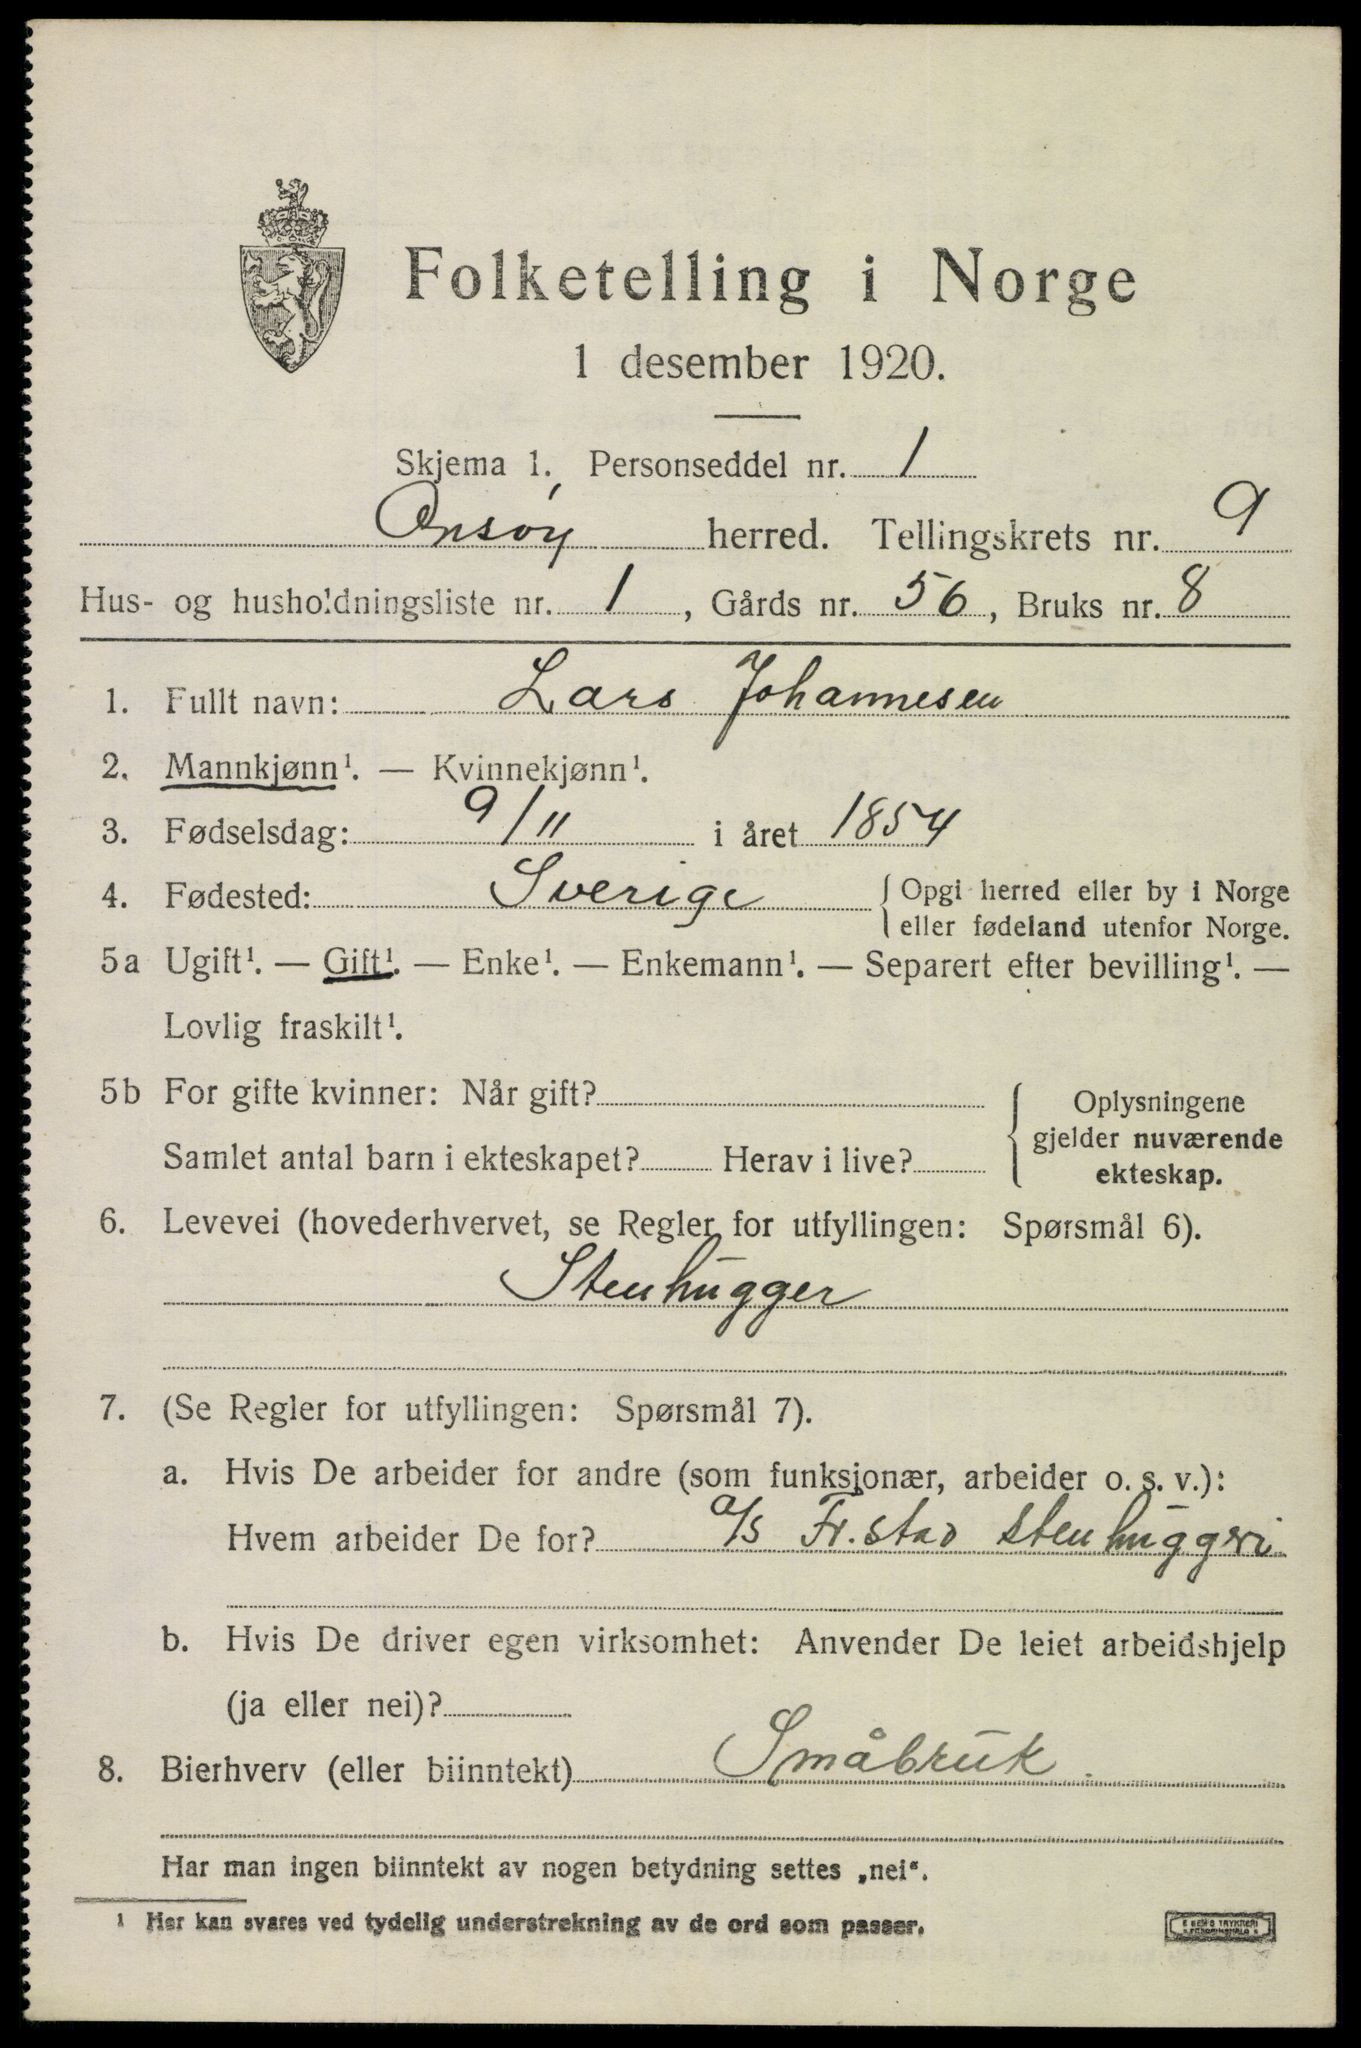 Folketelling i Norge
1 desember 1920.
Skjema 1. Personseddel nr. 1
Onsøy herred. Tellingskrets nr. 9
Hus- og husholdningsliste nr. 1, Gårds nr. 56, Bruks nr. 8
1. Fullt navn: Lars Johannesen
2. Mannkjønn¹. — Kvinnekjønn¹.
3. Fødselsdag: 9/11 i året 1854
4. Fødested: Sverige { Opgi herred eller by i Norge
eller fødeland utenfor Norge.
5a Ugift¹. — Gift¹. — Enke¹. — Enkemann¹. — Separert efter bevilling¹. —
Lovlig fraskilt¹.
5b For gifte kvinner: Når gift?
Samlet antal barn i ekteskapet? Herav i live?
Oplysningene
gjelder nuværende
ekteskap.
6. Levevei (hovederhvervet, se Regler for utfyllingen: Spørsmål 6).
Stenhugger
7. (Se Regler for utfyllingen: Spørsmål 7).
a. Hvis De arbeider for andre (som funksjonær, arbeider o. s. v.):
Hvem arbeider De for? a/s Fr.stad stenhuggeri
b. Hvis De driver egen virksomhet: Anvender De leiet arbeidshjelp
(ja eller nei)?
8. Bierhverv (eller biinntekt) Småbruk.
Har man ingen biinntekt av nogen betydning settes „nei“.
¹ Her kan svares ved tydelig understrekning av de ord som passer.